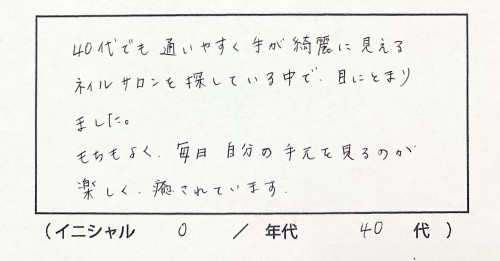 40代でも通いやすく手が綺麗に見える
ネイルサロンを探している中で、目にとまり
ました。
もちもよく、毎日 自分の手元を見るのが
楽しく、癒されています。
(イニシャル O / 年代 40 代 )